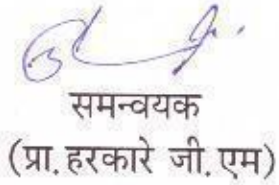 समन्वयक
(प्रा. हरकारे जी. एम)